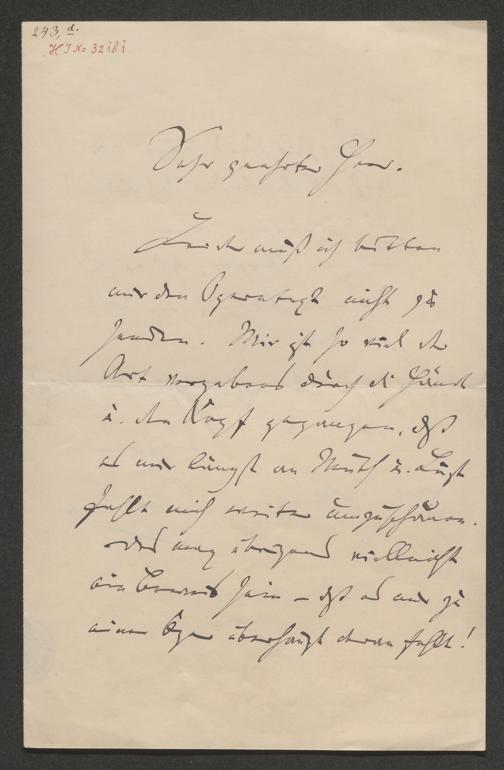 243, d.
H I No 32181
Sehr geehrter Herr.
Leider muß ich bitten
mir den Operntext nicht zu
senden. Mir ist so viel der
Art vergebens durch die Hände
u. den Kopf gegangen, daß
es mir längst an Muth u. Lust
fehlt mich weiter umzuschauen.
Das mag übrigens vielleicht
ein Beweis sein – daß es mir zu
einer Oper überhaupt daran fehlt!